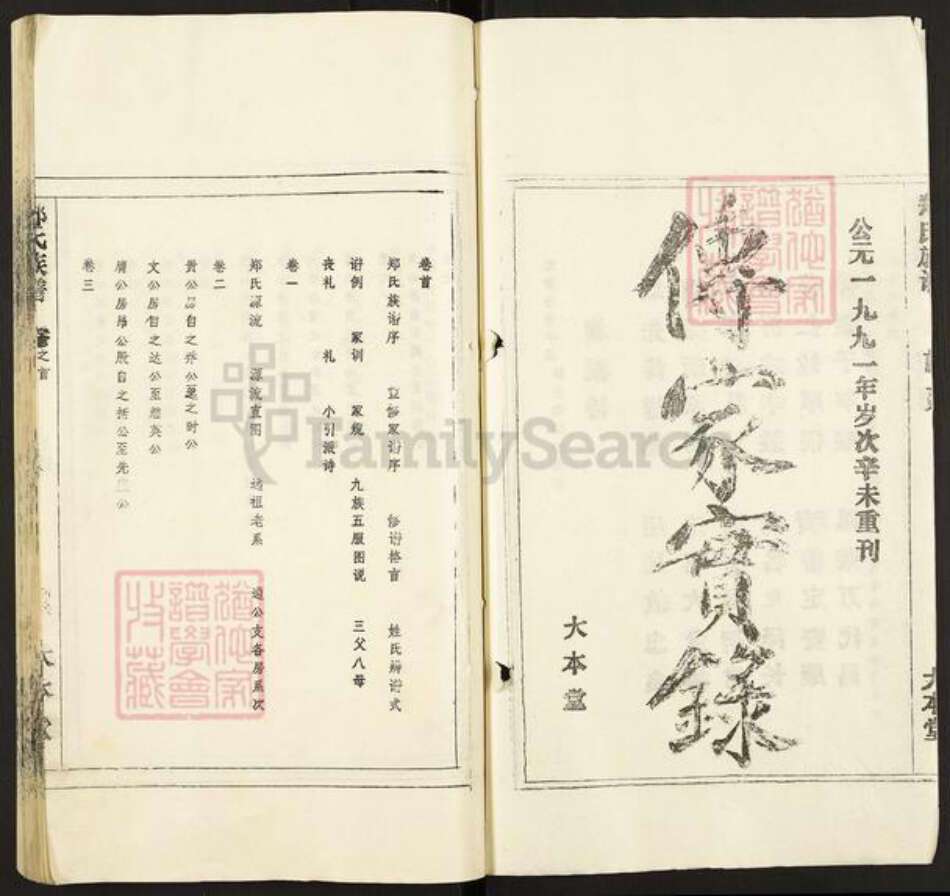 公元一九九一年岁次辛未重刊
傳家實錄
大本堂
大本堂
卷首
郑氏族谱序 谱序 修谱格言 姓氏辨谱式
谱例 家训 家规 九族五服图说 三父八母
丧礼 礼 小引派诗
卷一
郑氏源流 源流直图 祖老系 公支各房系次
卷二
贵公房自之乔公至之时公
文公房自之达公至
公房 公股自之 公至先 公
卷三
氏族譜 卷之首
大本堂
猶他家譜學會收藏
猶他家譜學會收藏
FamilySearch